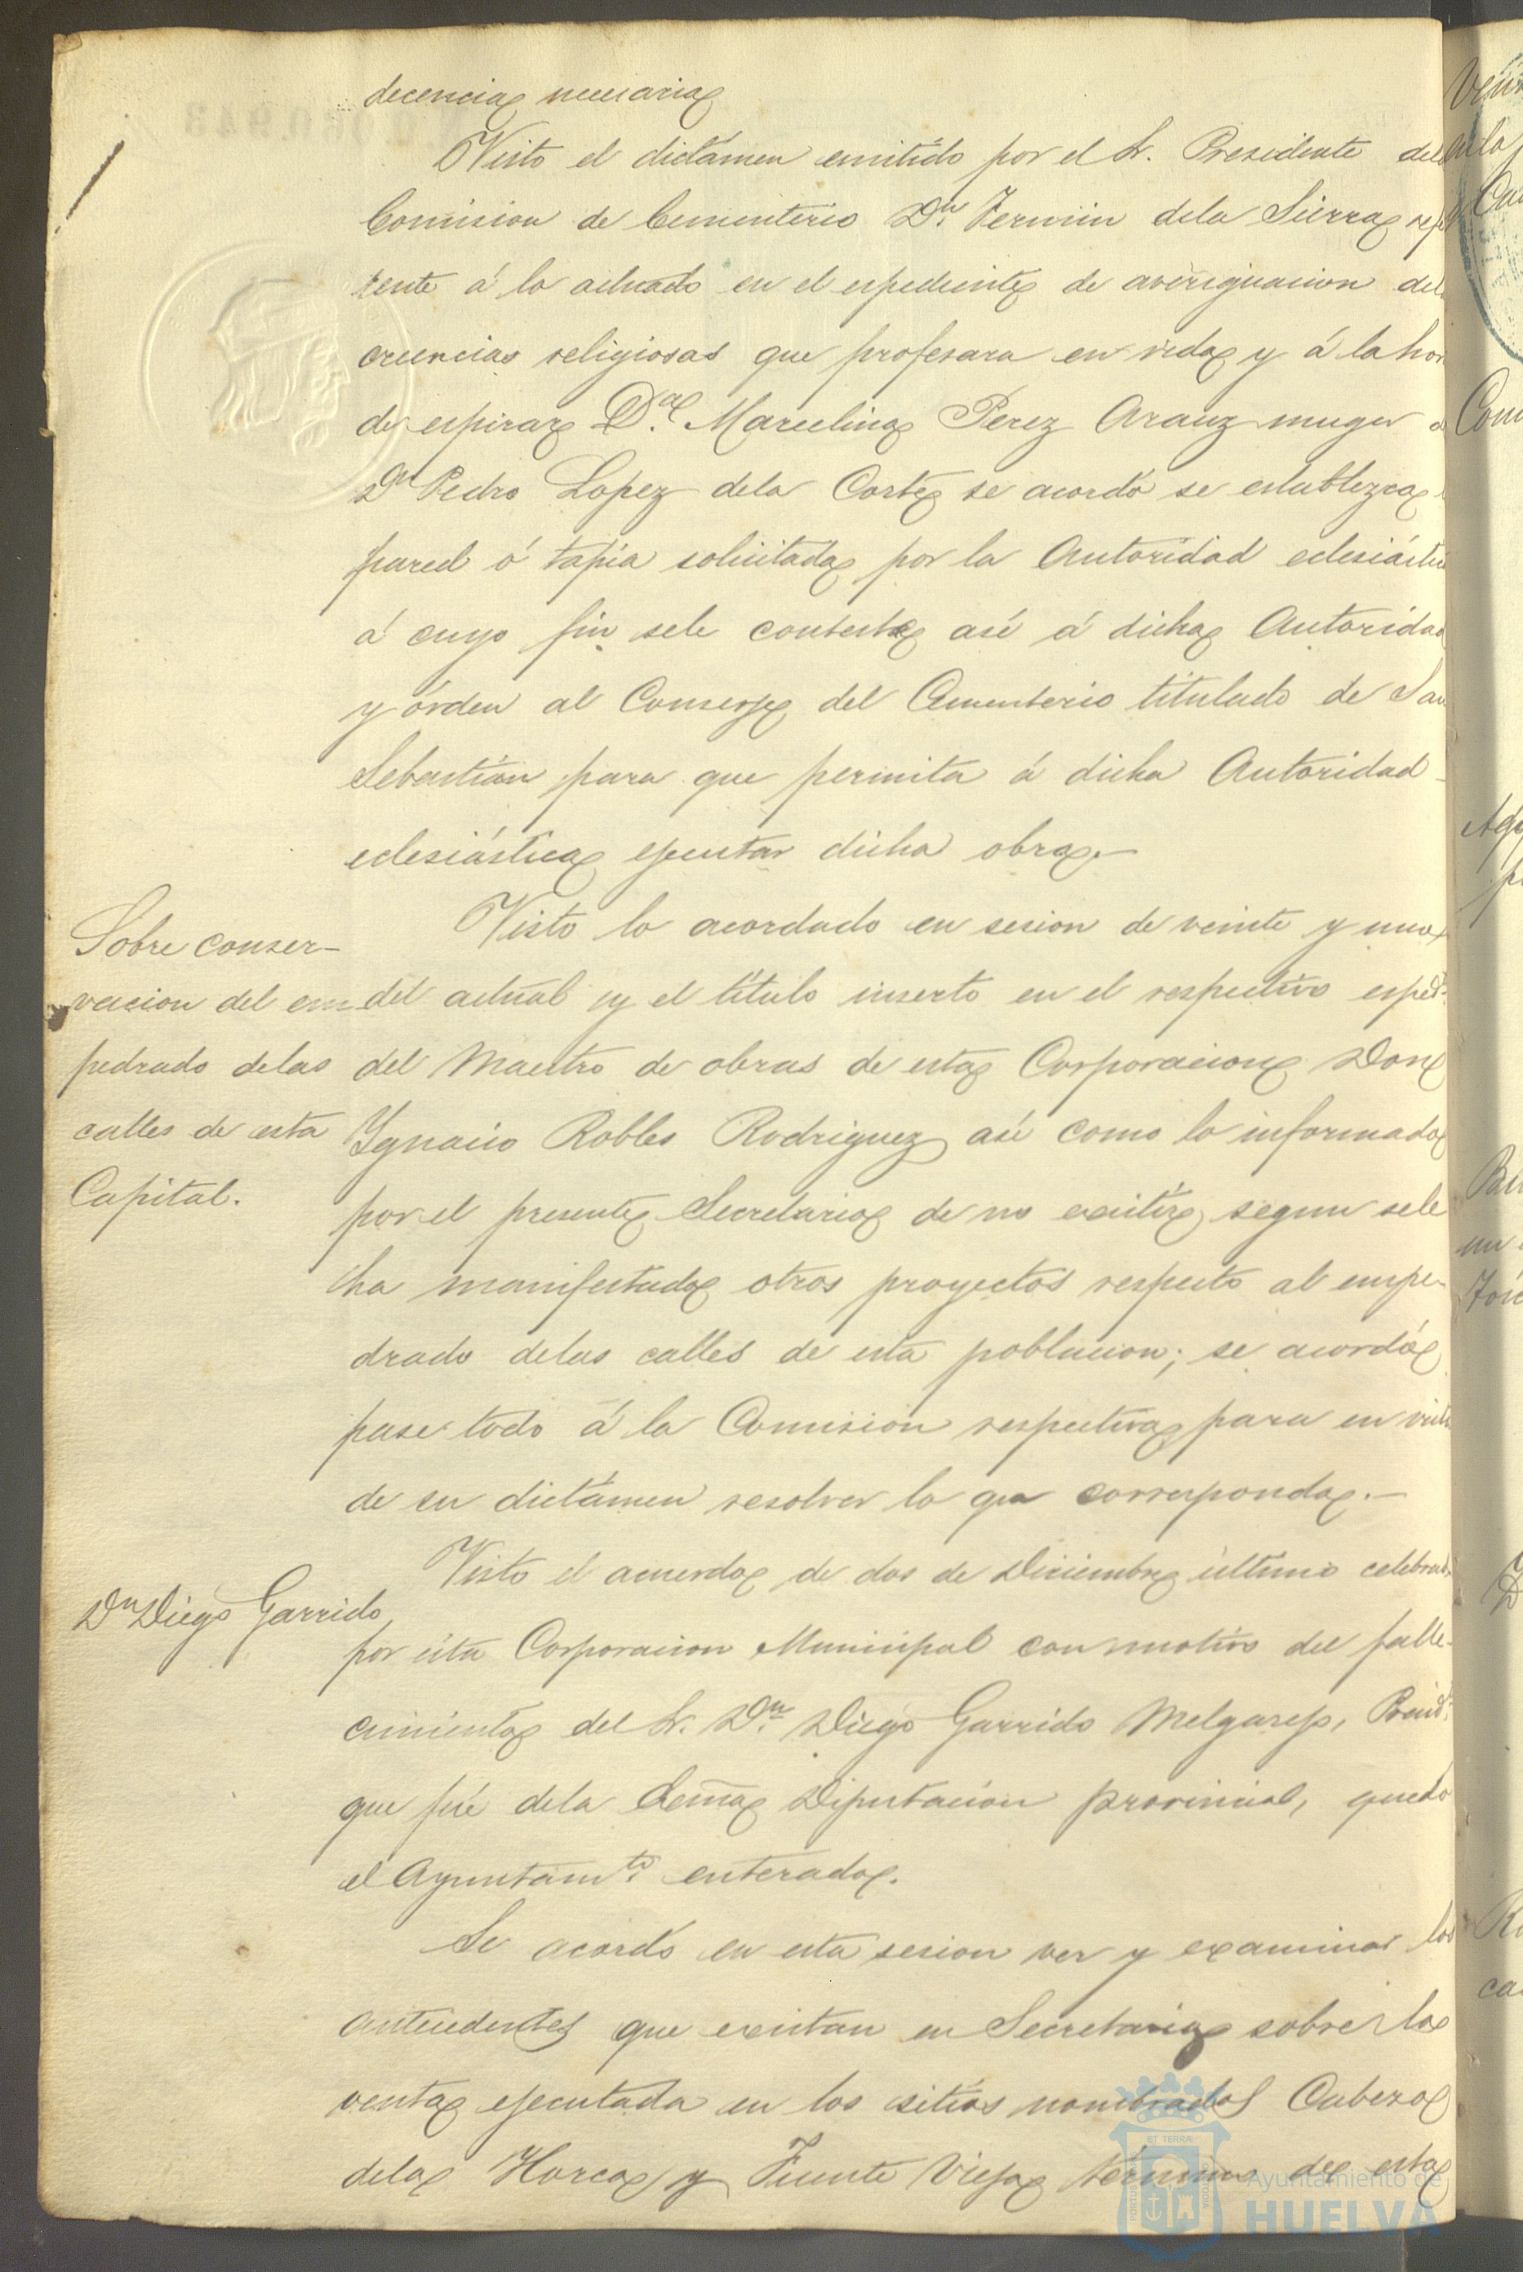 decencia necesaria
Visto el dictámen emitido por el Sr. Presidente dela
Comision de Cementerio Dn. Fermin dela Sierra refe
rente á lo actuado en el espediente de averiguacion del
creencias religiosas que profesara en vida y á la hora
de espirar Da. Marcelina Perez Aranz muger
Dn Pedro Lopez dela Corte se acordó se establezca
pared ó tapia solicitada por la Autoridad eclesiástica
á cuyo fin sele conteste asi á dicha Autoridad
y órden al Conserje del Cementerio titulado de San
Sebastián para que permita á dicha Autoridad
eclesiástica ejecutar dicha obra.—
Sobre conser-
vacion del em-
pedrado delas
calles de esta
Capital.
Visto lo acordado en sesion de veinte y uno
del actual y el título inserto en el respectivo espedte.
del Maestro de obras de esta Corporacion Don
Ygnacio Robles Rodriguez asi como lo informado
por el presente Secretario de no existir segun sele
ha manifestado otros proyectos respecto al empe-
drado delas calles de esta poblacion; se acordó
pase todo á la Comision respectiva para en vista
de su dictámen resolver lo que corresponda.—
Dn Diego Garrido
Visto el acuerdo de dos de Diciembre último celebrado
por esta Corporacion Municipal con motivo del falle-
cimiento del Sr. Dn. Diego Garrido Melgarejo, Presidte.
que fué dela Excma Diputacion provincial, quedó
el Ayuntamto. enterado.
Se acordó en esta sesion ver y examinar los
antecedentes que existan en Secretaria sobre la
venta ejecutada en los sitios nombrados Cabezo
dela Horca y Fuente Vieja término de esta
Ayuntamiento de
HUELVA